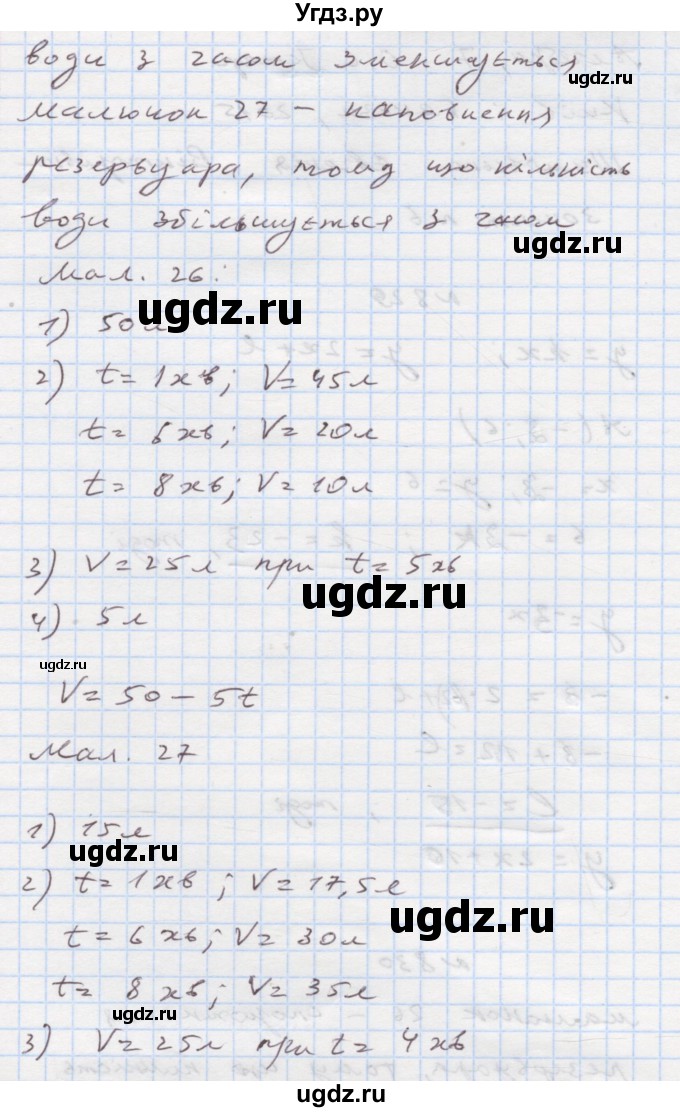 Угдз.ру
води з часом зменшується
малюнок 27 – наповнення
резервуара, тому що кількість
води збільшується з часом
ugdz.ru
ugdz.ru
Мал. 26:
ugdz.ru
1) 50л
2) t = 1хв; V = 45л
t = 6хв; V = 20л
t = 8хв; V = 10л
3) V = 25л при t = 5хв
ugdz.ru
4) 5л
ugdz.ru
V = 50 – 5t
Мал. 27
1) 15л
ugdz.ru
2) t = 1хв; V = 17,5л
ugdz.ru
t = 6хв; V = 30л
t = 8хв; V = 35л
ugdz.ru
3) V = 25л при t = 4хв
ugdz.ru